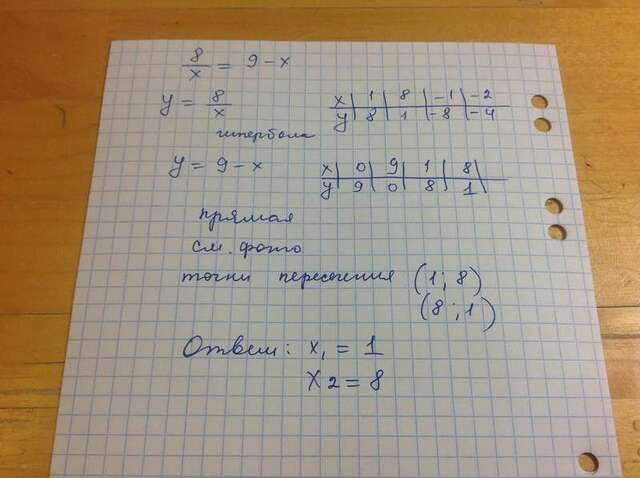 8/x = 9 - x
y = 8/x
гипербола
x | 1 | 8 | -1 | -2
y | 8 | 1 | -8 | -4
y = 9 - x
x | 0 | 9 | 1 | 8 |
y | 9 | 0 | 8 | 1 |
прямая
см. фото
точки пересечения (1; 8)
(8; 1)
Ответ: x₁ = 1
x2 = 8